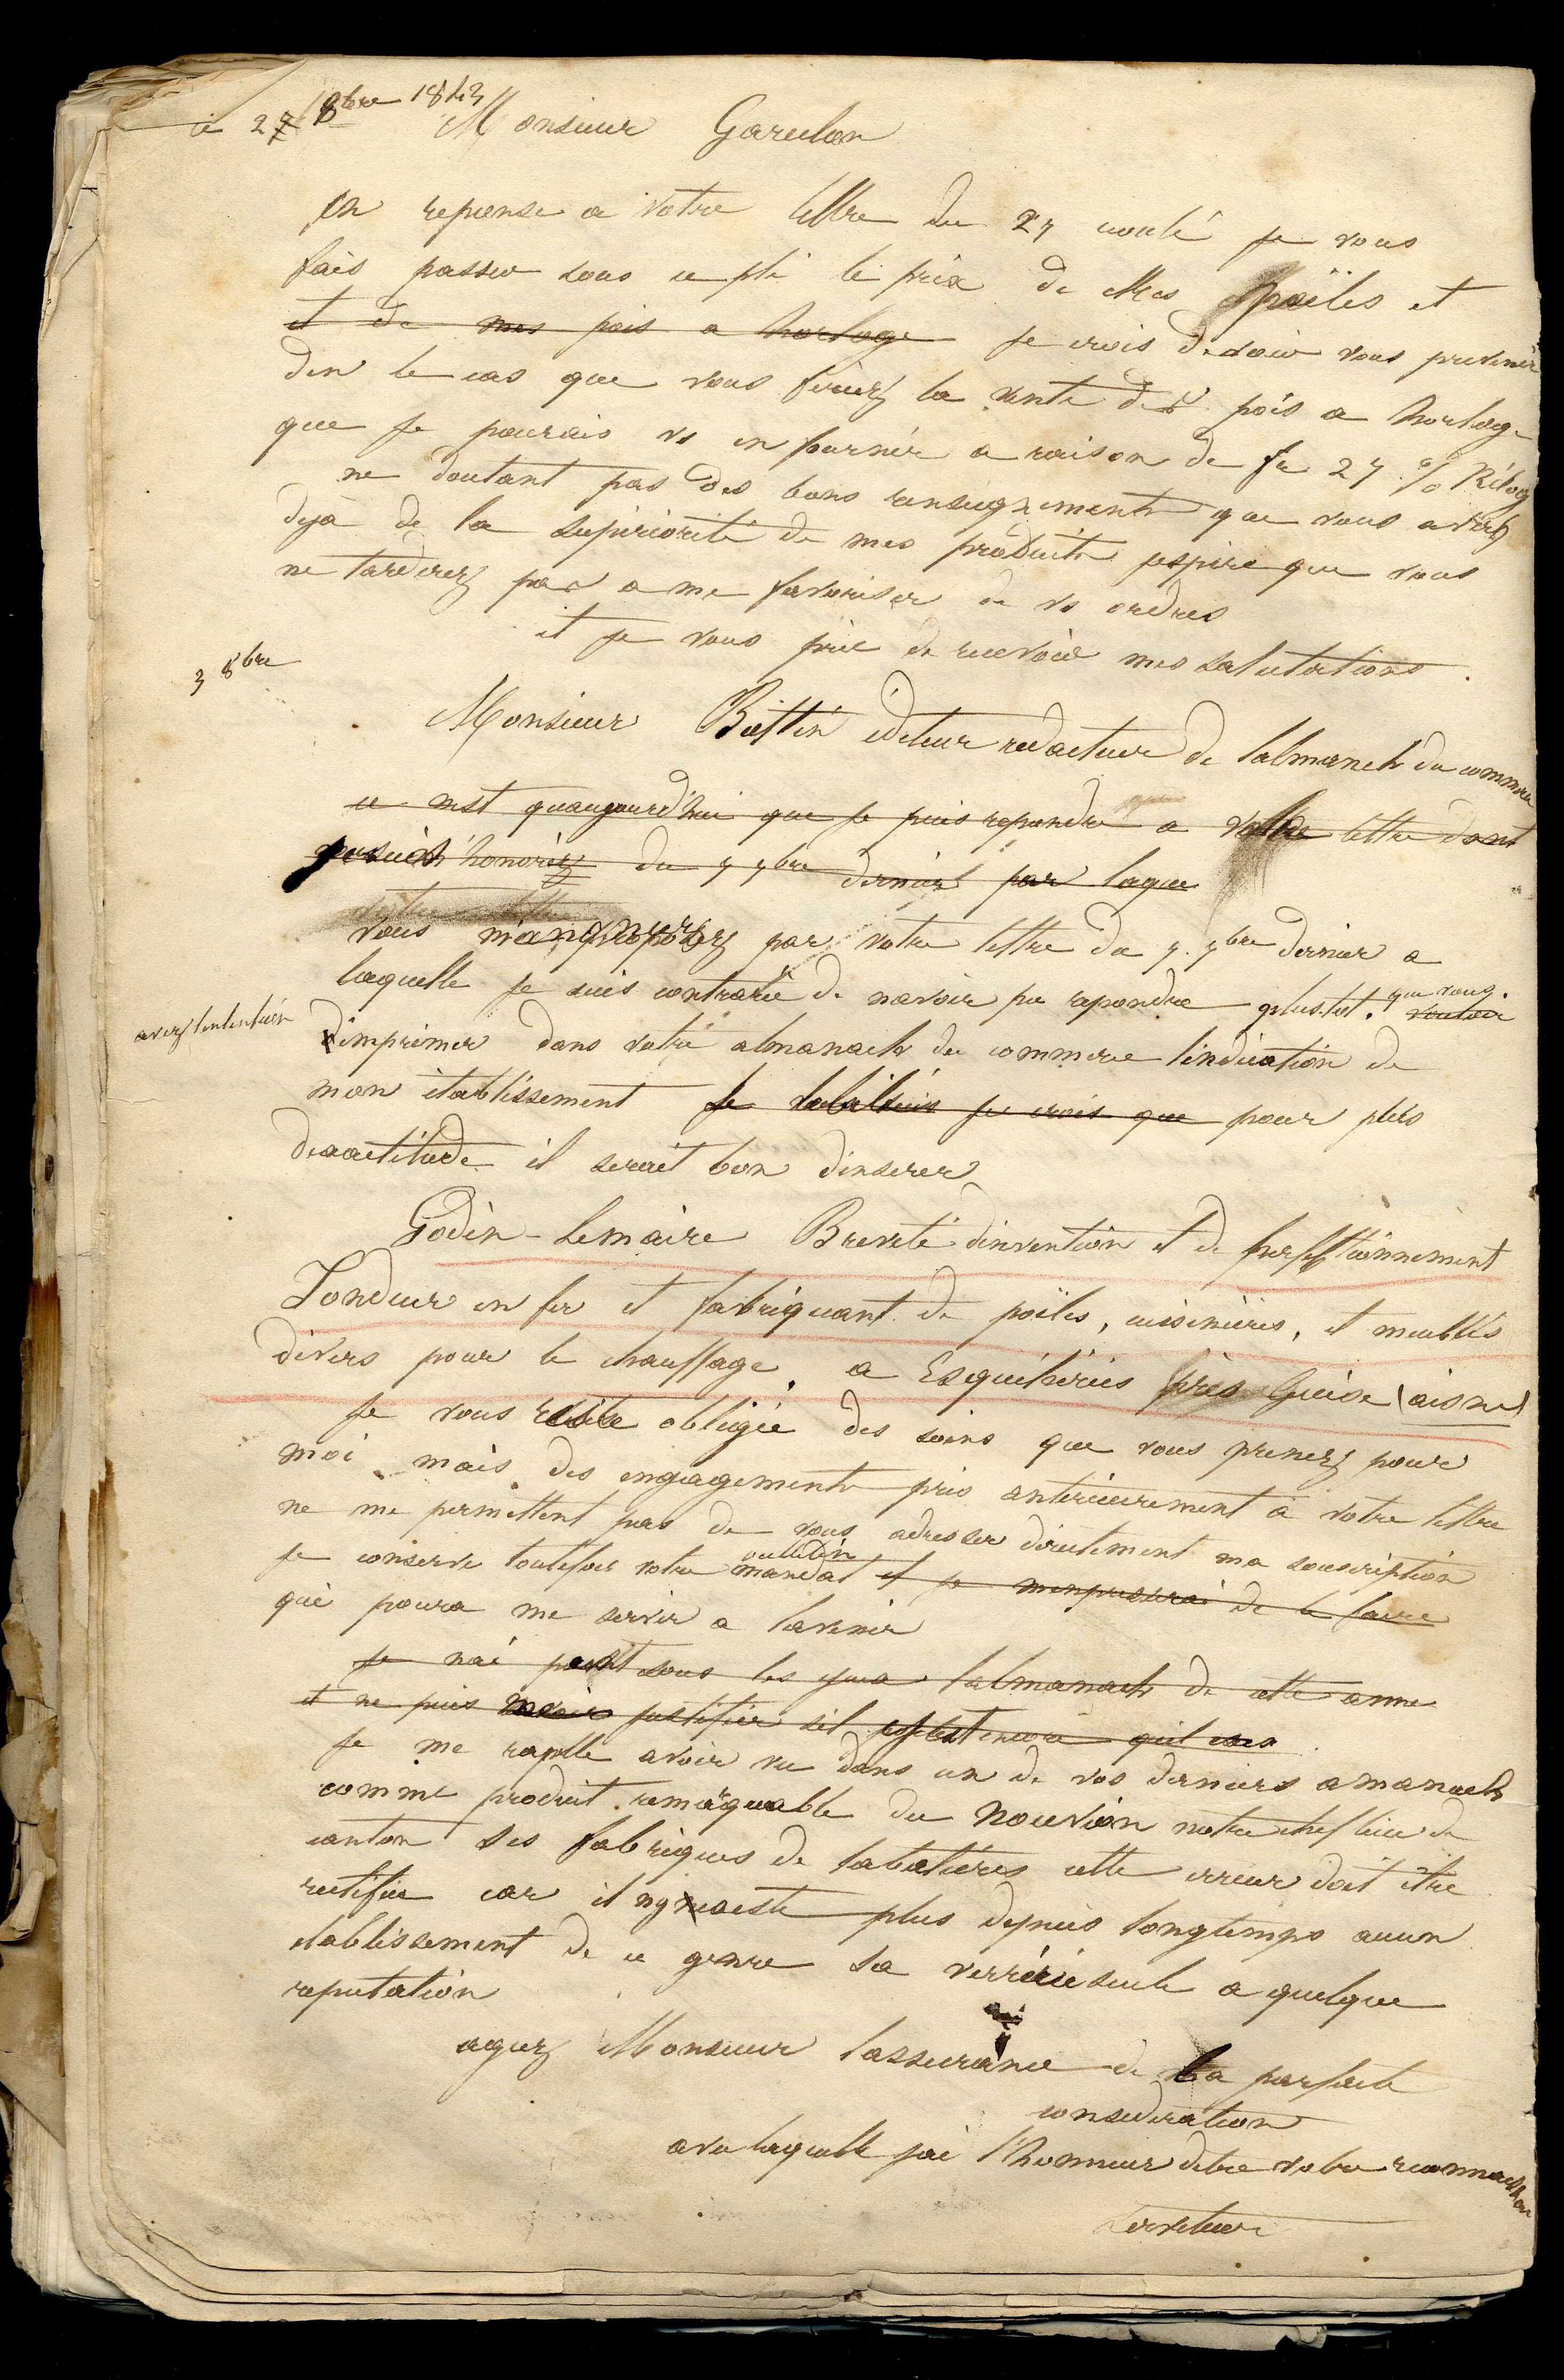 ce 2 8bre 1843
Monsieur Garulon
en reponse a votre lettre du 27 coulé je vous
fais passer sous ce pli le prix de Mes poëles et
et de mes pois a horloge je crois devoir vous prevenir
den le cas que vous feriez la vente de pois a horloge
que je pourais vs en fournir a raison de fr 27 % Kilog
ne doutant pas des bons renseignements que vous aviez
deja de la supériorité de mes produits jespire que vous
ne tarderez pas a me favoriser de vs ordres
et je vous prie de recevoir mes salutations.
3 8bre
Monsieur Bottin éditeur redacteur de lalmanch du commerce
ce nest quaujourd'hui que je puis repondre a votre lettre dont
honoriez du 7 7bre dernier par laque
vous par votre lettre du 7. 7bre dernier a
laquelle je suis contrarié de navoir pu repondre plus tot. que vous
avez lintention
dimprimer dans votre almanach du commerce lindication de
mon établissement je crois que pour plus
dexactitude il serait bon dinserer
Godin-Lemaire Breveté dinvention et de perfectionnement
Fondeur en fer et fabriquant de poëles, cuisinières, et meubles
divers pour le chauffage. a Esquéhéries près Guise (aisne)
je vous reste obligé des soins que vous prenez pour
moi. mais des engagements pris anterieurement à votre lettre
ne me permettent pas de vous adresser directement ma souscription
je conserve toutefois votre mandat bulletin et je menpresserai de le faire
qui poura me servir a lavenir
je nai point sous les yeux lalmanach de cette anne
et ne puis justifier sil encore quil
je me raplle avoir vu dans un de vos derniers amanachs
comme produit remarquable du Nouvion notre chef lieu de
canton ses fabriques de tabatières cette erreur doit être
rectifiee car il ny existe plus depuis longtemps aucun
etablissement de ce genre sa verrérie seule a quelque
reputation
agrez Monsieur lassurance de la parfaite
consideration
avec laquelle jai l'honneur detre votre reconnaissan
serviteur